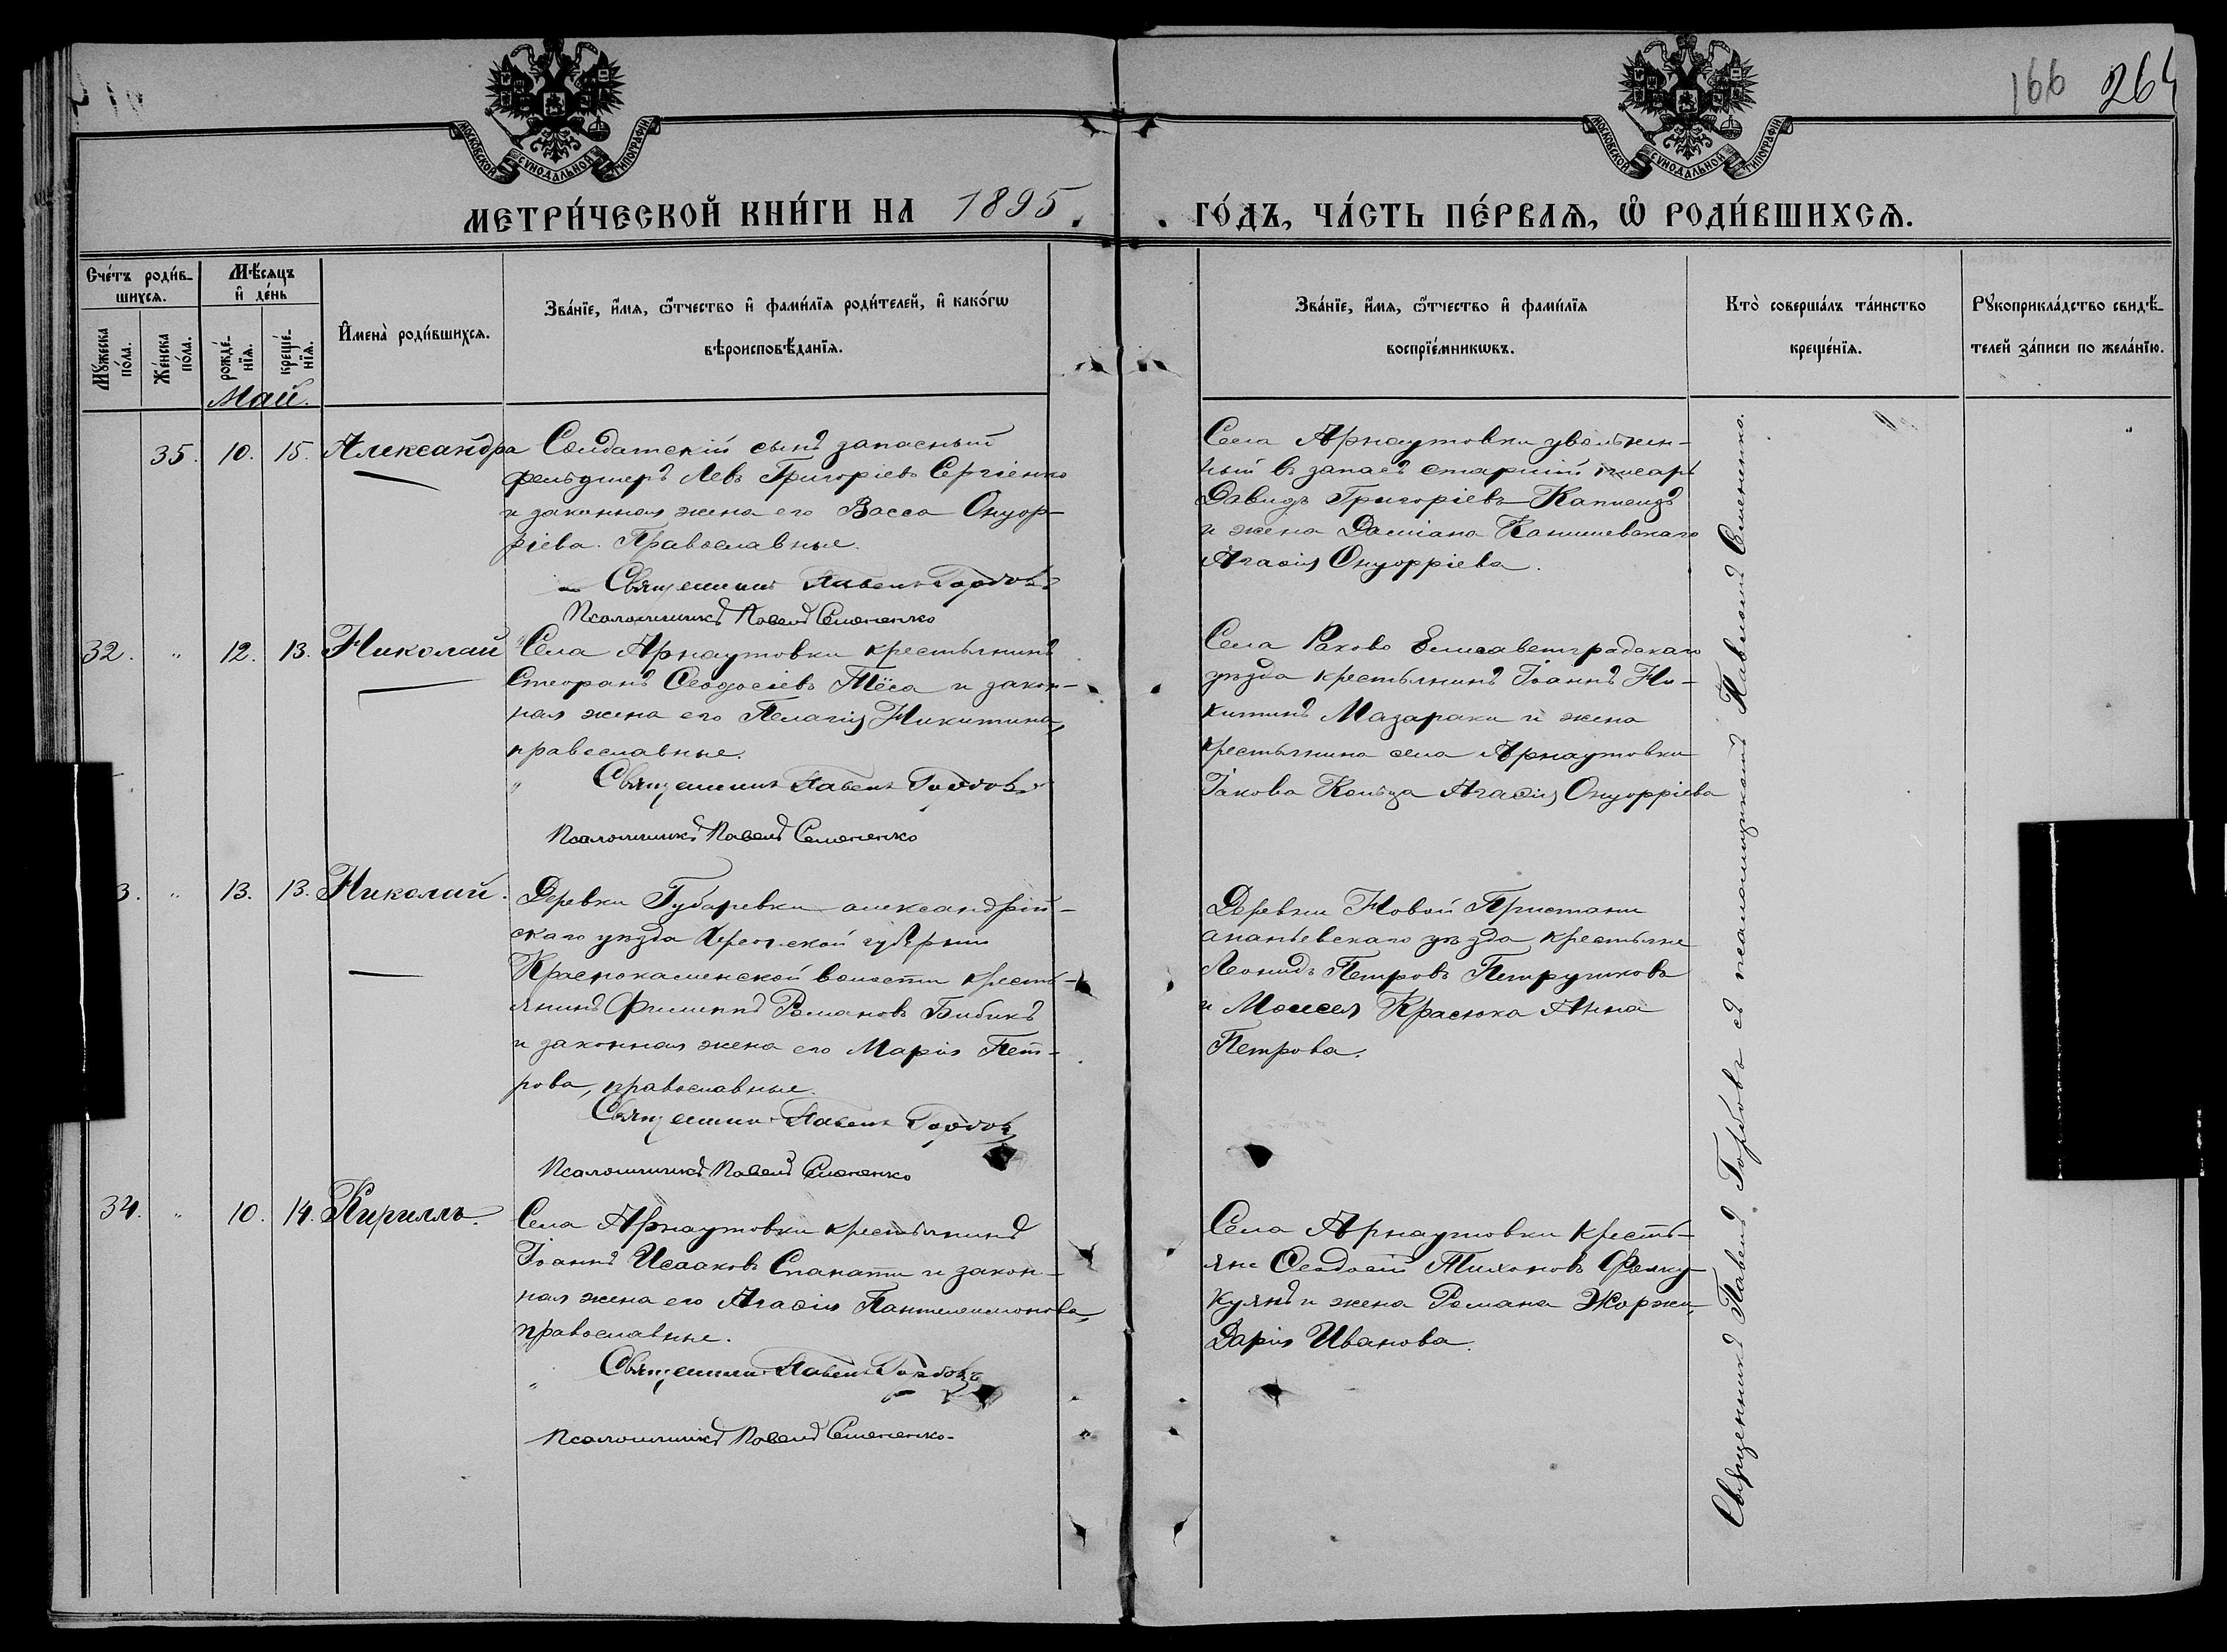 166 264
МОСКОВСКОЙ СУНОДАЛЬНОЙ ТИПОГРАФІИ
МОСКОВСКОЙ СУНОДАЛЬНОЙ ТИПОГРАФІИ
МЕТРИ́ЧЕСКОЙ КНИ́ГИ НА 1895.
ГО́ДЪ, ЧА́СТЬ ПЕ́РВАѦ, Ѽ РОДИ́ВШИХСѦ.
Сче́тъ роди́в-
шихсѧ.
Мꙋ́жеска по́ла.
Же́нска по́ла.
Мѣ́сяцъ
и҆ де́нь
рожде́-
нїѧ.
креще́-
нїѧ.
И҆мена̀ роди́вшихсѧ.
Зва́нїе, и҆́мѧ, ѻ҆́тчество и҆ фами́лїѧ роди́телей, и҆ како́гѡ
вѣроисповѣ́данїѧ.
Зва́нїе, и҆́мѧ, ѻ҆́тчество и҆ фами́лїѧ
воспрїе́мникѡвъ.
Кто̀ соверша́лъ та́инство
креще́нїѧ.
Рꙋкоприкла́дство свидѣ́-
телей за́писи по жела́нїю.
Май.
35. 10. 15. Александра
Солдатскій сынъ запасный
фельдшеръ Левъ Григоріевъ Сергіенко
и законная жена его Васса Онуф-
ріева. Православные.
Священникъ Павелъ Горбовъ
Псаломщикъ Павелъ Семененко
Села Арнаутовки уволен-
ный въ запасъ старшій писарь
Давидъ Григоріевъ
и жена Даміана
Агаѳія Онуфріева.
32. " 12. 13. Николай
Села Арнаутовки крестьянинъ
Стефанъ Ѳеодосіевъ Тёса и закон-
ная жена его Пелагія Никитина,
православные.
Священникъ Павелъ Горбовъ
Псаломщикъ Павелъ Семененко
Села Раково Елисаветградскаго
уѣзда крестьянинъ Іоаннъ Ни-
китинъ Мазараки и жена
крестьянина села Арнаутовки
Іакова Кольца Агаѳія Онуфріева
3. " 13. 13. Николай.
Деревни Губаревки александрій-
скаго уѣзда Херсонской губерніи
Краснокаменской волости кресть-
янинъ Филиппъ Романовъ Бибикъ
и законная жена его Марія Пет-
рова, православные.
Священникъ Павелъ Горбовъ
Псаломщикъ Павелъ Семененко
Деревни Новой Пристани
ананьевскаго уѣзда крестьяне
Леонидъ Петровъ Петрушковъ
и Моисея Красюка Анна
Петрова.
34. " 10. 14. Кириллъ.
Села Арнаутовки крестьянинъ
Іоаннъ Исааковъ Спанати и закон-
ная жена его Агаѳія Пантелеимонова,
православные.
Священникъ Павелъ Горбовъ
Псаломщикъ Павелъ Семененко.
Села Арнаутовки кресть-
яне Ѳеодосій Тихоновъ
и жена Романа Жоржи,
Дарія Иванова.
Священникъ Павелъ Горбовъ съ псаломщикомъ Павломъ Семененко.